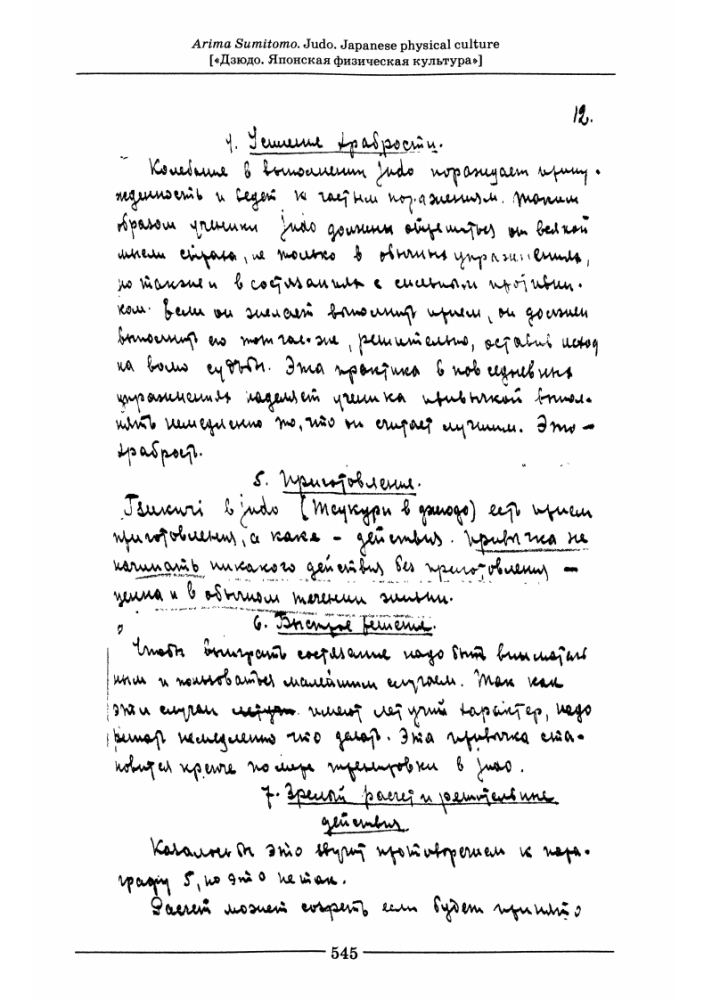 Arima Sumitomo. Judo. Japanese physical culture
[«Дзюдо. Японская физическая культура»]
12.
4. Усиление храбрости.
Колебание в выполнении judo порождает прину-
жденность и ведет к частым поражениям. Таким
образом ученики judo должны отрешиться от всякой
мысли страха, не только в обычных упражнениях,
но также и в состязаниях с сильным противни-
ком. Если он желает выполнить прием, он должен
выполнить его тотчас-же, решительно, оставив исход
на волю судьбы. Эта практика в повседневных
упражнениях наделяет ученика привычкой выпол-
нять немедленно то, что он считает лучшим. Это –
храбрость.
5. Приготовление.
Tsukuri в judo (Тсукури в дзюдо) есть прием
приготовления, а каке – действия. Привычка не
начинать никакого действия без приготовления –
ценна и в обычном течении жизни.
6. Быстрое решение.
Чтобы выиграть состязание надо быть вниматель
ным и пользоваться малейшим случаем. Так как
эти случаи имеют летучий характер, надо
решать немедленно что делать. Эта привычка ста-
новится крепче по мере тренировки в judo.
7. Зрелый расчет и решительные
действия
Казалось бы это звучит противоречием к пара-
графу 5, но это не так.
Расчет может созреть если будет принято
545